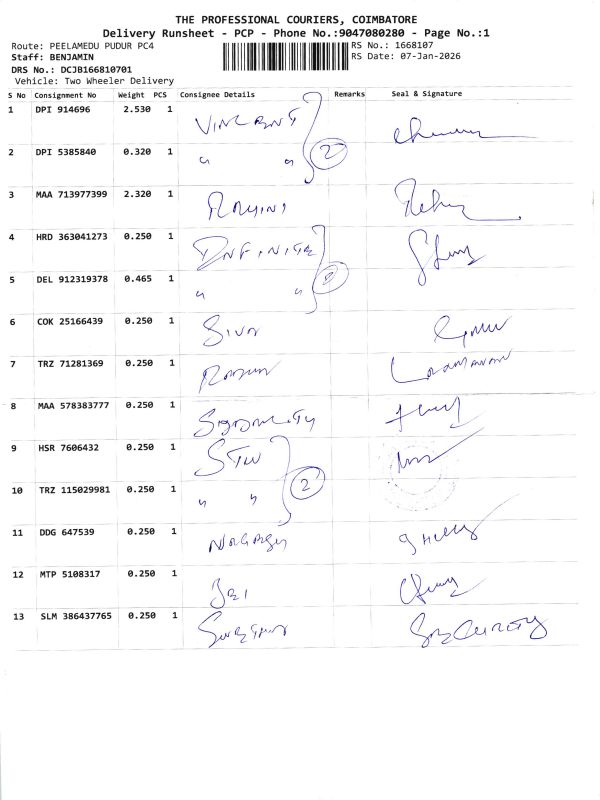 THE PROFESSIONAL COURIERS, COIMBATORE
Delivery Runsheet - PCP - Phone No.:9047080280 - Page No.:1
Route: PEELAMEDU PUDUR PC4 RS No.: 1668107
Staff: BENJAMIN RS Date: 07-Jan-2026
DRS No.: DCJB166810701
Vehicle: Two Wheeler Delivery
S No Consignment No Weight PCS Consignee Details Remarks Seal & Signature
1 DPI 914696 2.530 1 VINCENT
2 DPI 5385840 0.320 1 " " 2
3 MAA 713977399 2.320 1 ROHINI
4 HRD 363041273 0.250 1 INFINITE
5 DEL 912319378 0.465 1 " " 2
6 COK 25166439 0.250 1 SIVA
7 TRZ 71281369 0.250 1
8 MAA 578383777 0.250 1
9 HSR 7606432 0.250 1
10 TRZ 115029981 0.250 1 " " 2
11 DDG 647539 0.250 1
12 MTP 5108317 0.250 1
13 SLM 386437765 0.250 1